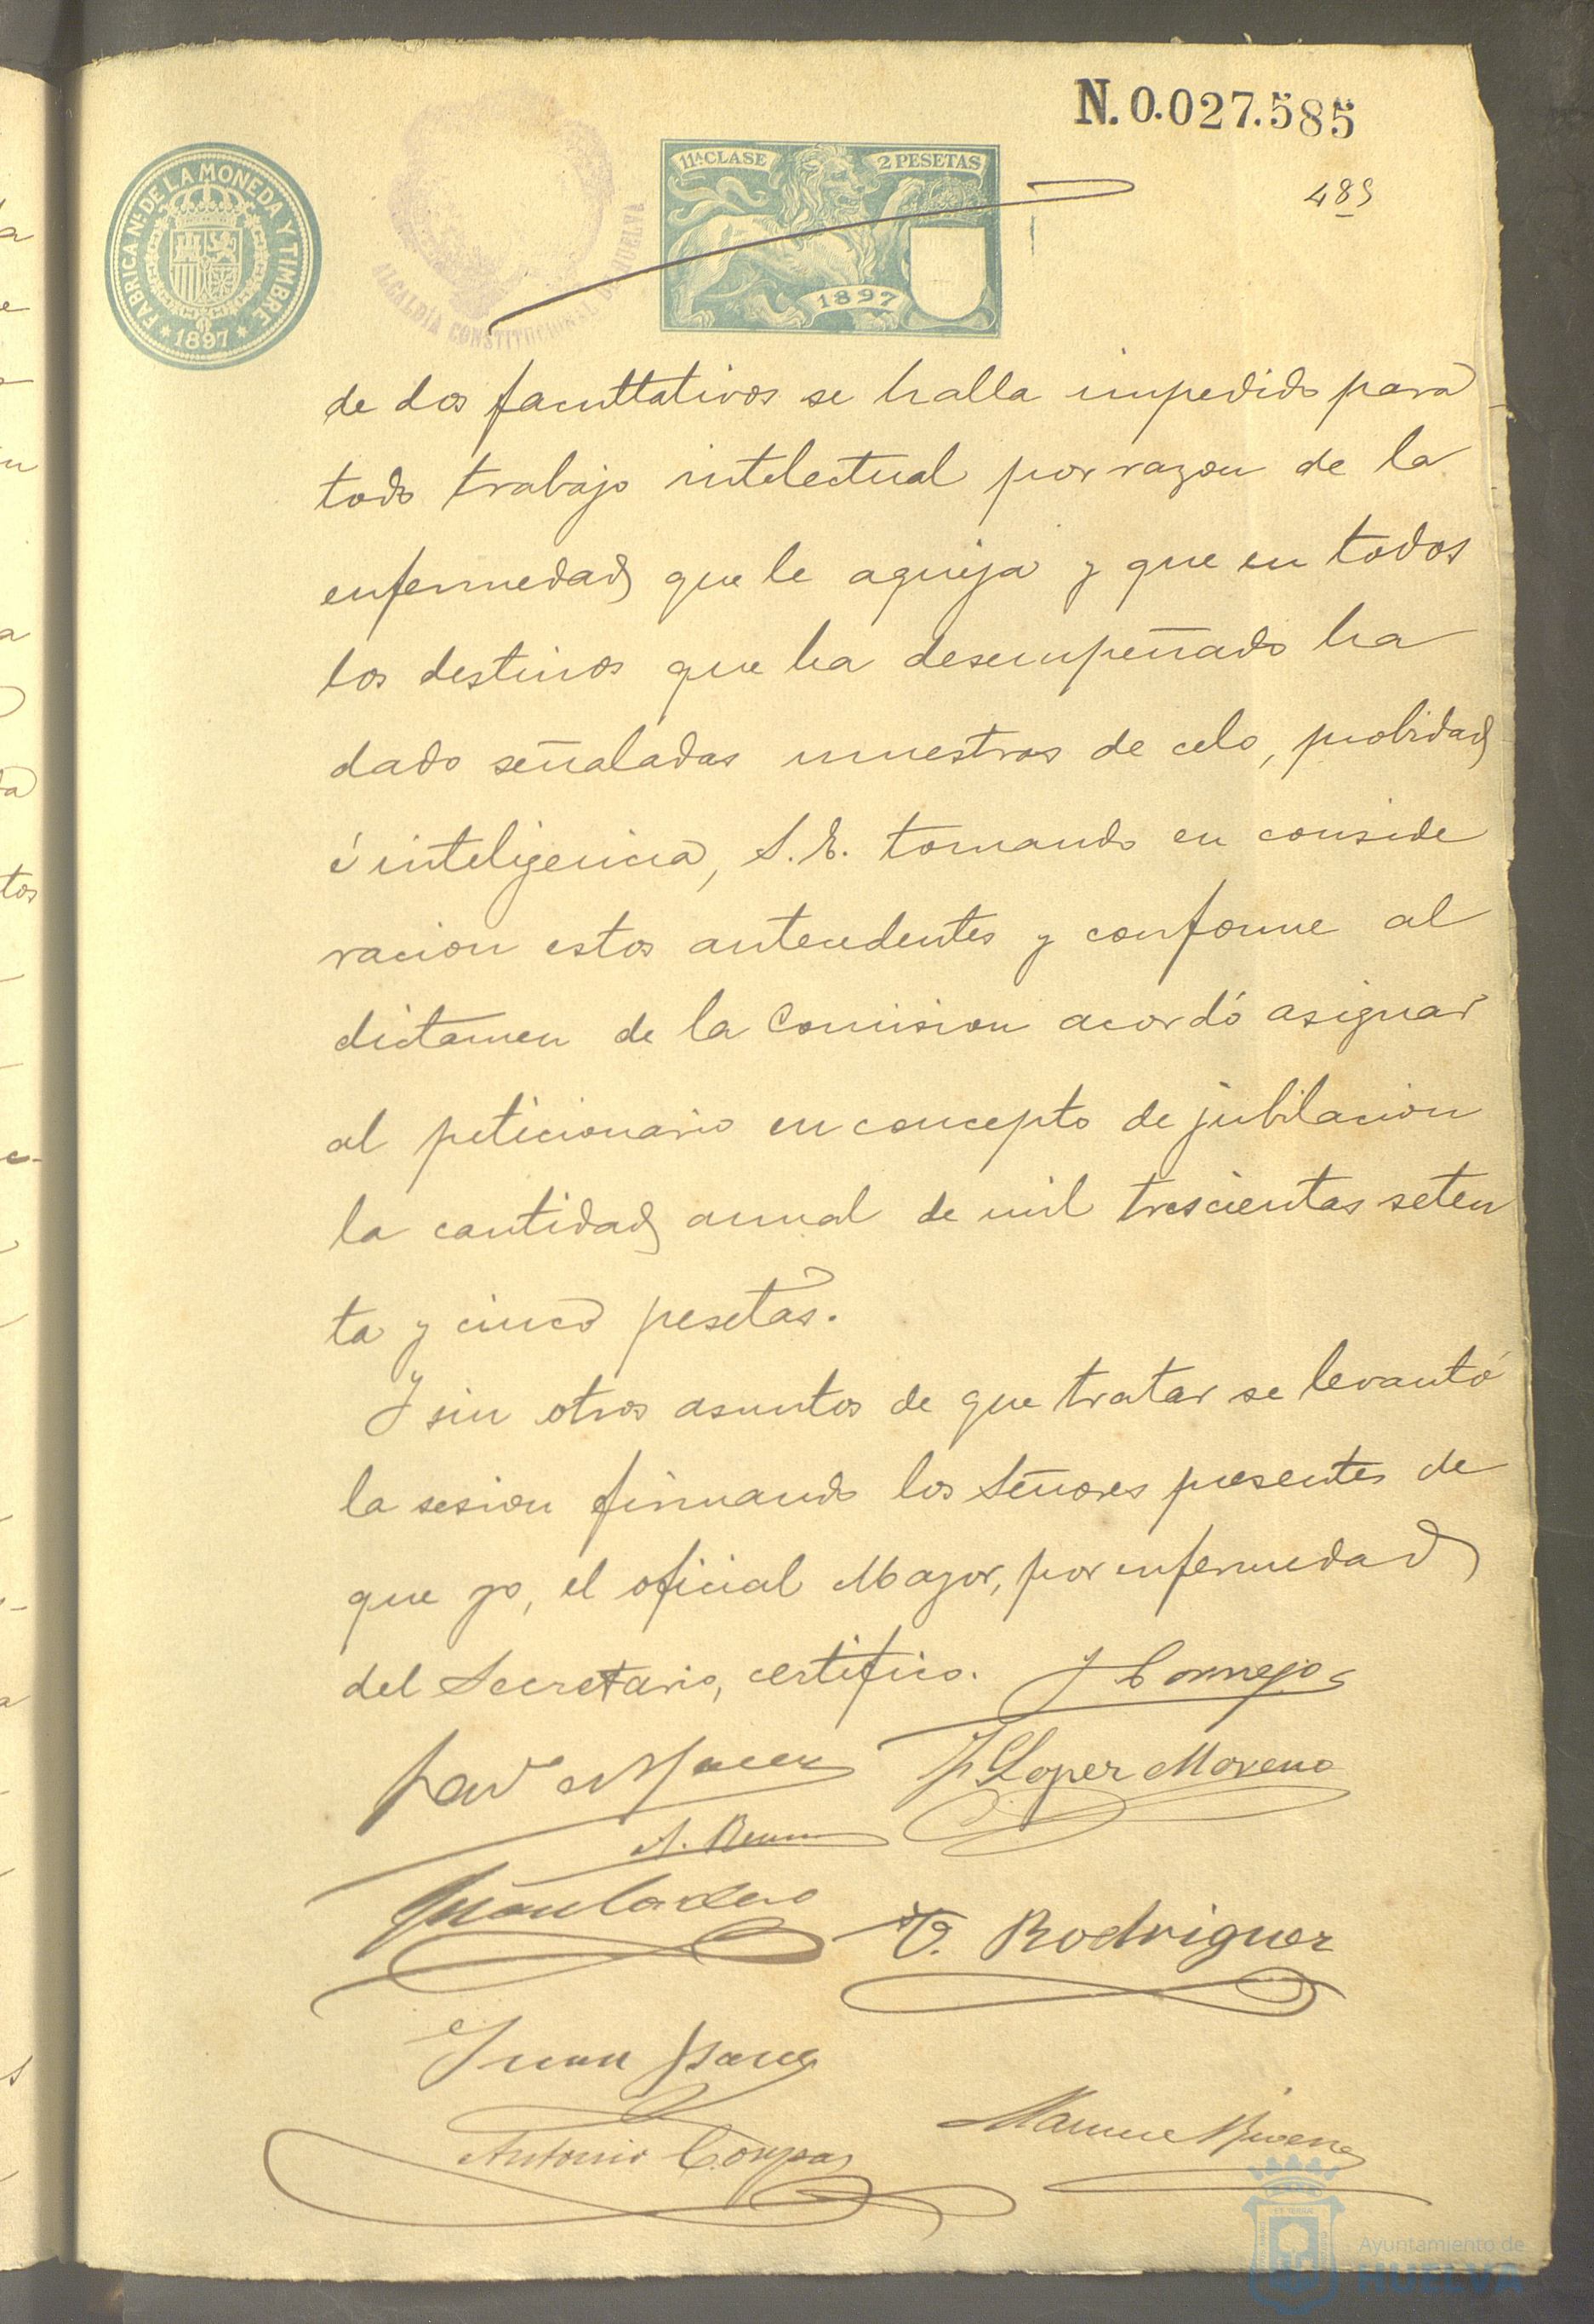 N. 0.027.585
489
FABRICA NL. DE LA MONEDA Y TIMBRE
* 1897 *
ALCALDIA CONSTITUCIONAL DE HUELVA
11ª CLASE 2 PESETAS
1897
de dos facultativos se halla impedido para
todo trabajo intelectual por razon de la
enfermedad que le aqueja y que en todos
los destinos que ha desempeñado ha
dado señaladas muestras de celo, probidad
é inteligencia, S. E. tomando en conside
racion estos antecedentes y conforme al
dictamen de la Comision acordó asignar
al peticionario en concepto de jubilacion
la cantidad anual de mil trescientas seten
ta y cinco pesetas.
Y sin otros asuntos de que tratar se levantó
la sesion firmando los Señores presentes de
que yo, el oficial Mayor, por enfermedad
del Secretario, certifico. J Cornejo
J. Lopez Moreno
V. Rodriguez
Juan
Antonio Corpas
Manuel
Ayuntamiento de
HUELVA